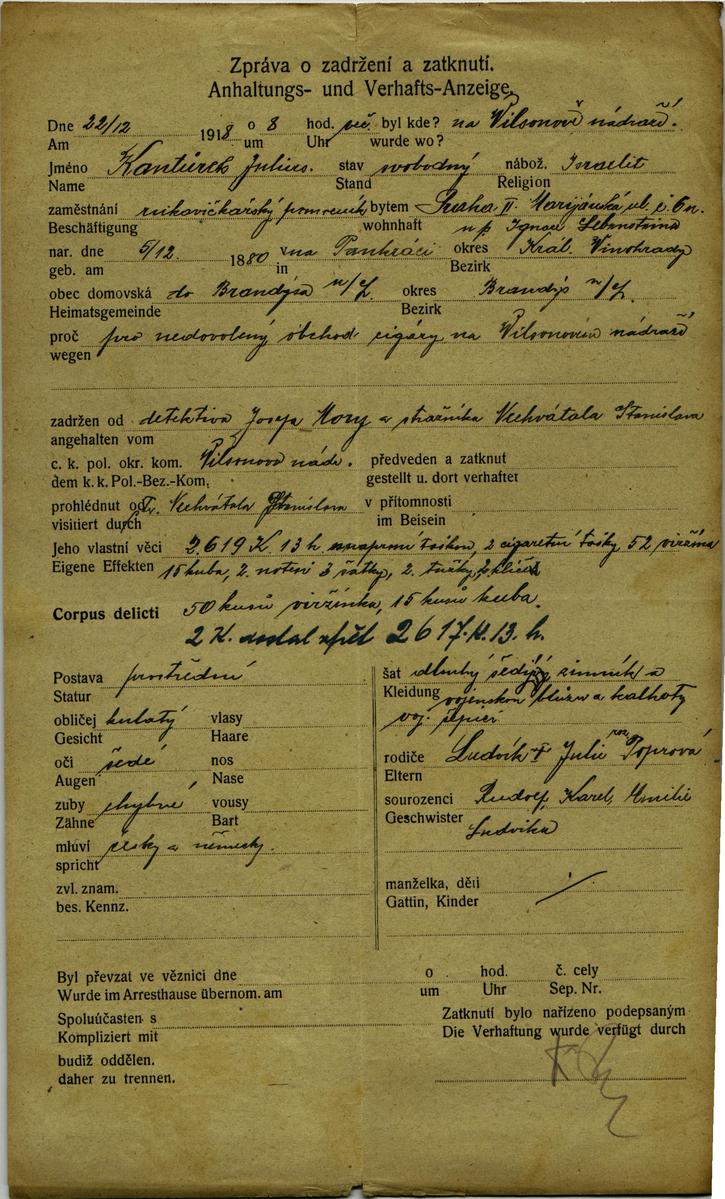 Zpráva o zadržení a zatknutí.
Anhaltungs- und Verhafts-Anzeige.
Dne 22/12 1918 o 8 hod. več. byl kde? na Wilsonově nádraží.
Am um Uhr wurde wo?
Jméno Kantůrek Julius. stav svobodný nábož. Israelit
Name Stand Religion
zaměstnání rukavičkářský pomocník bytem Praha II Marijánská ul. č. 6 n.
Beschäftigung wohnhaft u p. Ignace Lebensteina
nar. dne 5/12. 1880 v na Pankráci okres Král. Vinohrady
geb. am in Bezirk
obec domovská do Brandýsa n/L. okres Brandýs n/L.
Heimatsgemeinde Bezirk
proč pro nedovolený obchod cigáry na Wilsonovém nádraží
wegen
zadržen od detektiva Josefa Mory a strážníka Vechvátala Stanislava
angehalten vom
c. k. pol. okr. kom. Wilsonovo nádr. předveden a zatknut
dem k. k. Pol.-Bez.-Kom. gestellt u. dort verhaftet
prohlédnut od Vechvátala Stanislava v přítomnosti
visitiert durch im Beisein
Jeho vlastní věci 2.619 K 13 h 2 cigaretní tašky, 52 viržinia
Eigene Effekten 15 kuba, 2 notesi 3 šátky, 2 tužky, klíče
Corpus delicti 50 kusů viržinka, 15 kusů kuba.
2 K. dodal zpět 2617 K. 13. h.
Postava prostřední šat dlouhý šedivý zimník a
Statur Kleidung vojenskou blůzu a kalhoty
voj. čepici
obličej kulatý vlasy
Gesicht Haare
oči šedé nos rodiče Ludvík † Julie roz. Poprová
Augen Nase Eltern
zuby chybné vousy sourozenci Rudolf, Karel, Emilie
Zähne Bart Geschwister Ludvika
mluví česky a německy.
spricht
zvl. znam. manželka, děti /
bes. Kennz. Gattin, Kinder
Byl převzat ve věznici dne o hod. č. cely
Wurde im Arresthause übernom. am um Uhr Sep. Nr.
Spoluúčasten s Zatknutí bylo nařízeno podepsaným
Kompliziert mit Die Verhaftung wurde verfügt durch
budiž oddělen.
daher zu trennen.